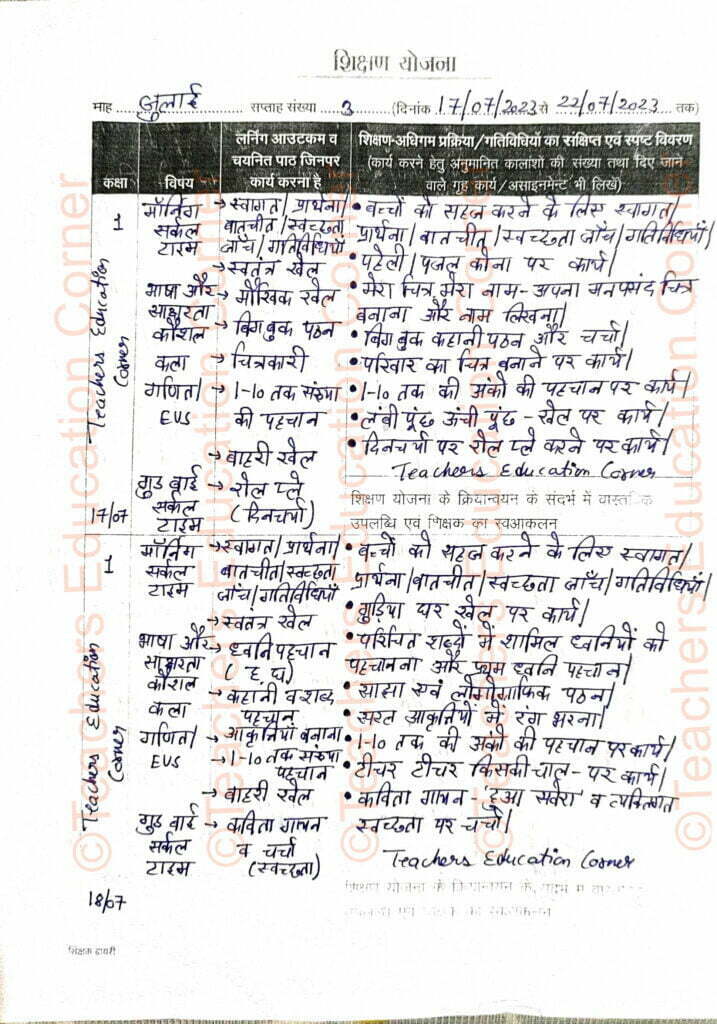 शिक्षण योजना
माह ..... जुलाई ..... सप्ताह संख्या ..... 3 ..... (दिनांक 17/07/2023 से 22/07/2023 तक)
कक्षा
विषय
लर्निंग आउटकम व
चयनित पाठ जिनपर
कार्य करना है
शिक्षण-अधिगम प्रक्रिया/गतिविधियों का संक्षिप्त एवं स्पष्ट विवरण
(कार्य करने हेतु अनुमानित कालांशों की संख्या तथा दिए जाने
वाले गृह कार्य/असाइनमेन्ट भी लिखें)
1
17/07
Teachers Education
Corner
मॉर्निंग
सर्कल
टाइम
भाषा और
साक्षरता
कौशल
कला
गणित/
EVS
गुड बाई
सर्कल
टाइम
→ स्वागत/प्रार्थना/
बातचीत/स्वच्छता
जाँच/गतिविधियाँ
→ स्वतंत्र खेल
→ मौखिक खेल
→ बिग बुक पठन
→ चित्रकारी
→ 1-10 तक संख्या
की पहचान
→ बाहरी खेल
→ रोल प्ले
(दिनचर्या)
• बच्चों को सहज करने के लिए स्वागत/
प्रार्थना/बातचीत/स्वच्छता जाँच/गतिविधियाँ/
• पहेली/पजल कोना पर कार्य/
• मेरा चित्र, मेरा नाम - अपना मनपसंद चित्र
बनाना और नाम लिखना/
• बिग बुक कहानी पठन और चर्चा/
• परिवार का चित्र बनाने पर कार्य/
• 1-10 तक की अंकों की पहचान पर कार्य/
• लंबी पूंछ ऊंची पूंछ - खेल पर कार्य/
• दिनचर्या पर रोल प्ले करने पर कार्य/
Teachers Education Corner
शिक्षण योजना के क्रियान्वयन के संदर्भ में वास्तविक
उपलब्धि एवं शिक्षक का स्वआकलन
1
18/07
Teachers Education
Corner
मॉर्निंग
सर्कल
टाइम
भाषा और
साक्षरता
कौशल
कला
गणित/
EVS
गुड बाई
सर्कल
टाइम
→ स्वागत/प्रार्थना/
बातचीत/स्वच्छता
जाँच/गतिविधियाँ
→ स्वतंत्र खेल
→ ध्वनि पहचान
→ कहानी व शब्द
पहचान
→ आकृतियाँ बनाना
→ 1-10 तक संख्या
पहचान
→ बाहरी खेल
→ कविता गायन
व चर्चा
(स्वच्छता)
• बच्चों को सहज करने के लिए स्वागत/
प्रार्थना/बातचीत/स्वच्छता जाँच/गतिविधियाँ/
• गुड़िया घर खेल पर कार्य/
• परिचित शब्दों में शामिल ध्वनियों को
पहचानना और प्रथम ध्वनि पहचान/
• साझा एवं लोगोग्राफिक पठन/
• सरल आकृतियों में रंग भरना/
• 1-10 तक की अंकों की पहचान पर कार्य/
• टीचर टीचर किसकी चाल - पर कार्य/
• कविता गायन - 'हुआ सवेरा' व व्यक्तिगत
स्वच्छता पर चर्चा/
Teachers Education Corner
शिक्षक डायरी
©Teachers Education Corner
©Teachers Education Corner
©Teachers Education Corner
©Teachers Education Corner